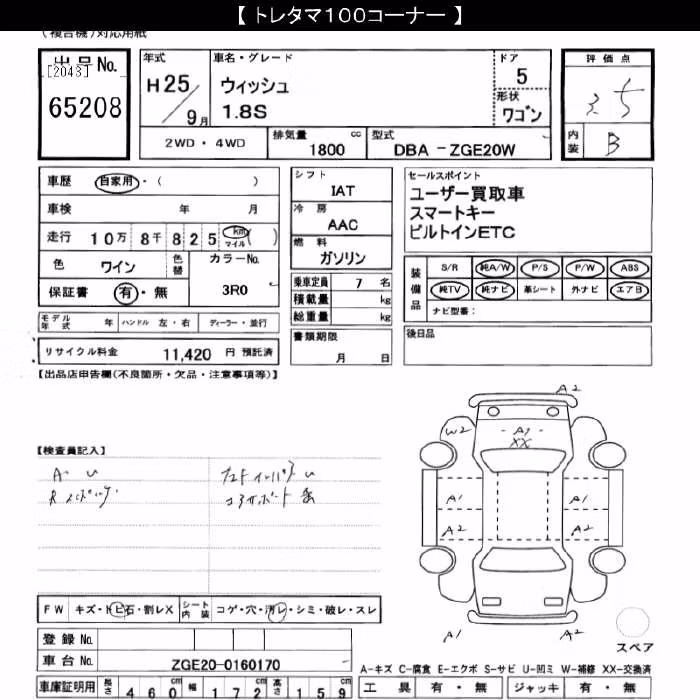 【 トレタマ100コーナー 】
(複合機)対応用紙
出品No.
[2043]
65208
年式
H25/9月
車名・グレード
ウィッシュ
1.8S
ドア
5
形状
ワゴン
評価点
3.5
内装
B
2WD・4WD
排気量
1800 cc
型式
DBA-ZGE20W
車歴 自家用・( )
車検 年 月
走行 10万 8千 825 km マイル ( )
色 ワイン 色替 カラーNo.
3R0
保証書 有・無
モデル年式 年 ハンドル 左・右 ディーラー・並行
リサイクル料金 11,420 円 預託済
シフト
IAT
冷房
AAC
燃料
ガソリン
乗車定員 7 名
積載量 kg
総重量 kg
書類期限
月 日
セールスポイント
ユーザー買取車
スマートキー
ビルトインETC
装備品
S/R 純A/W P/S P/W ABS
純TV 純ナビ 革シート 外ナビ エアB
ナビ型番:
後日品
【出品店申告欄(不良箇所・欠品・注意事項等)】
【検査員記入】
A・U
A2
W2
A1
XX
A1
A1
A2
A2
A1
A2
スペア
FW キズ・トビ石・割レX シート内装 コゲ・穴・汚レ・シミ・破レ・スレ
登録 No.
車台 No. ZGE20-0160170
車庫証明用 長さ 460 cm 幅 172 cm 高さ 159 cm
A-キズ C-腐食 E-エクボ S-サビ U-凹ミ W-補修 XX-交換済
工具 有・無 ジャッキ 有・無